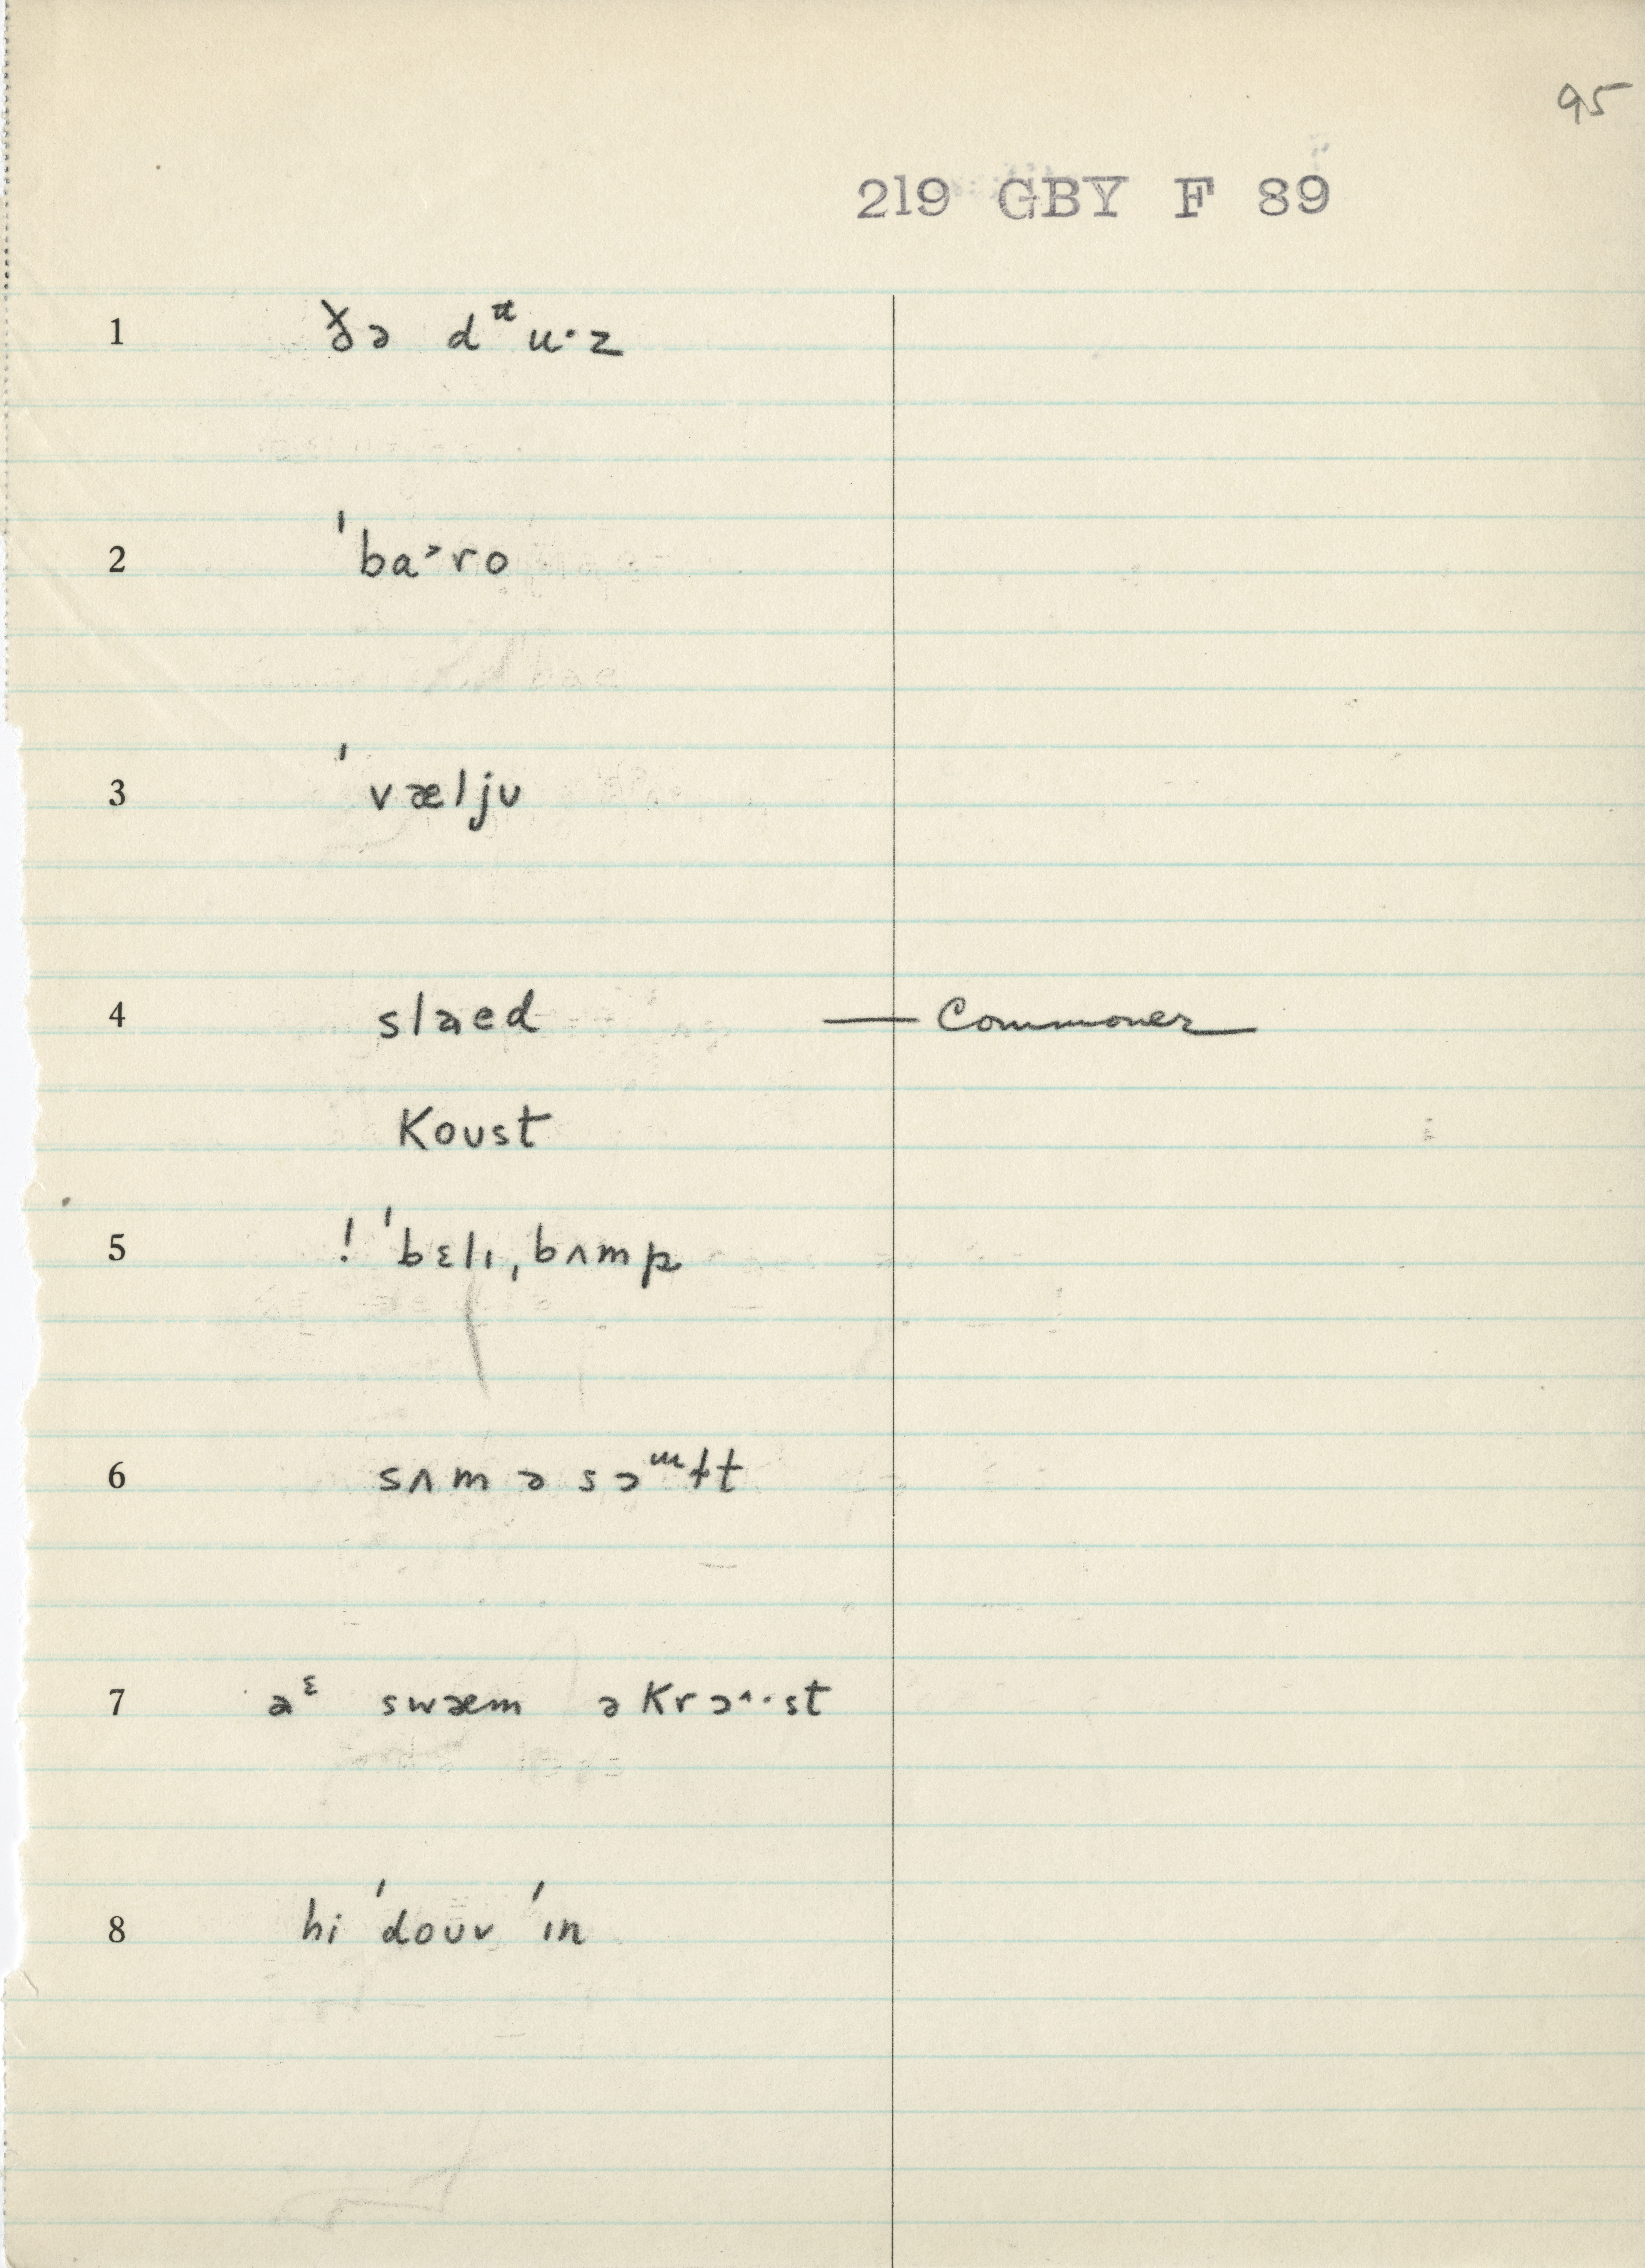 95
219 GBY F 89
1 ðə dᵻu·z
2 ˈba˃ro
3 ˈvæljʊ
4 slæed — Commoner
Koʊst
5 ! ˈbɛlɪˌbʌmp
6 sʌm ə sɔᵚɫt
7 aᵋ swæm əKrɔ^··st
8 hi ˈdoʊv ˈɪn